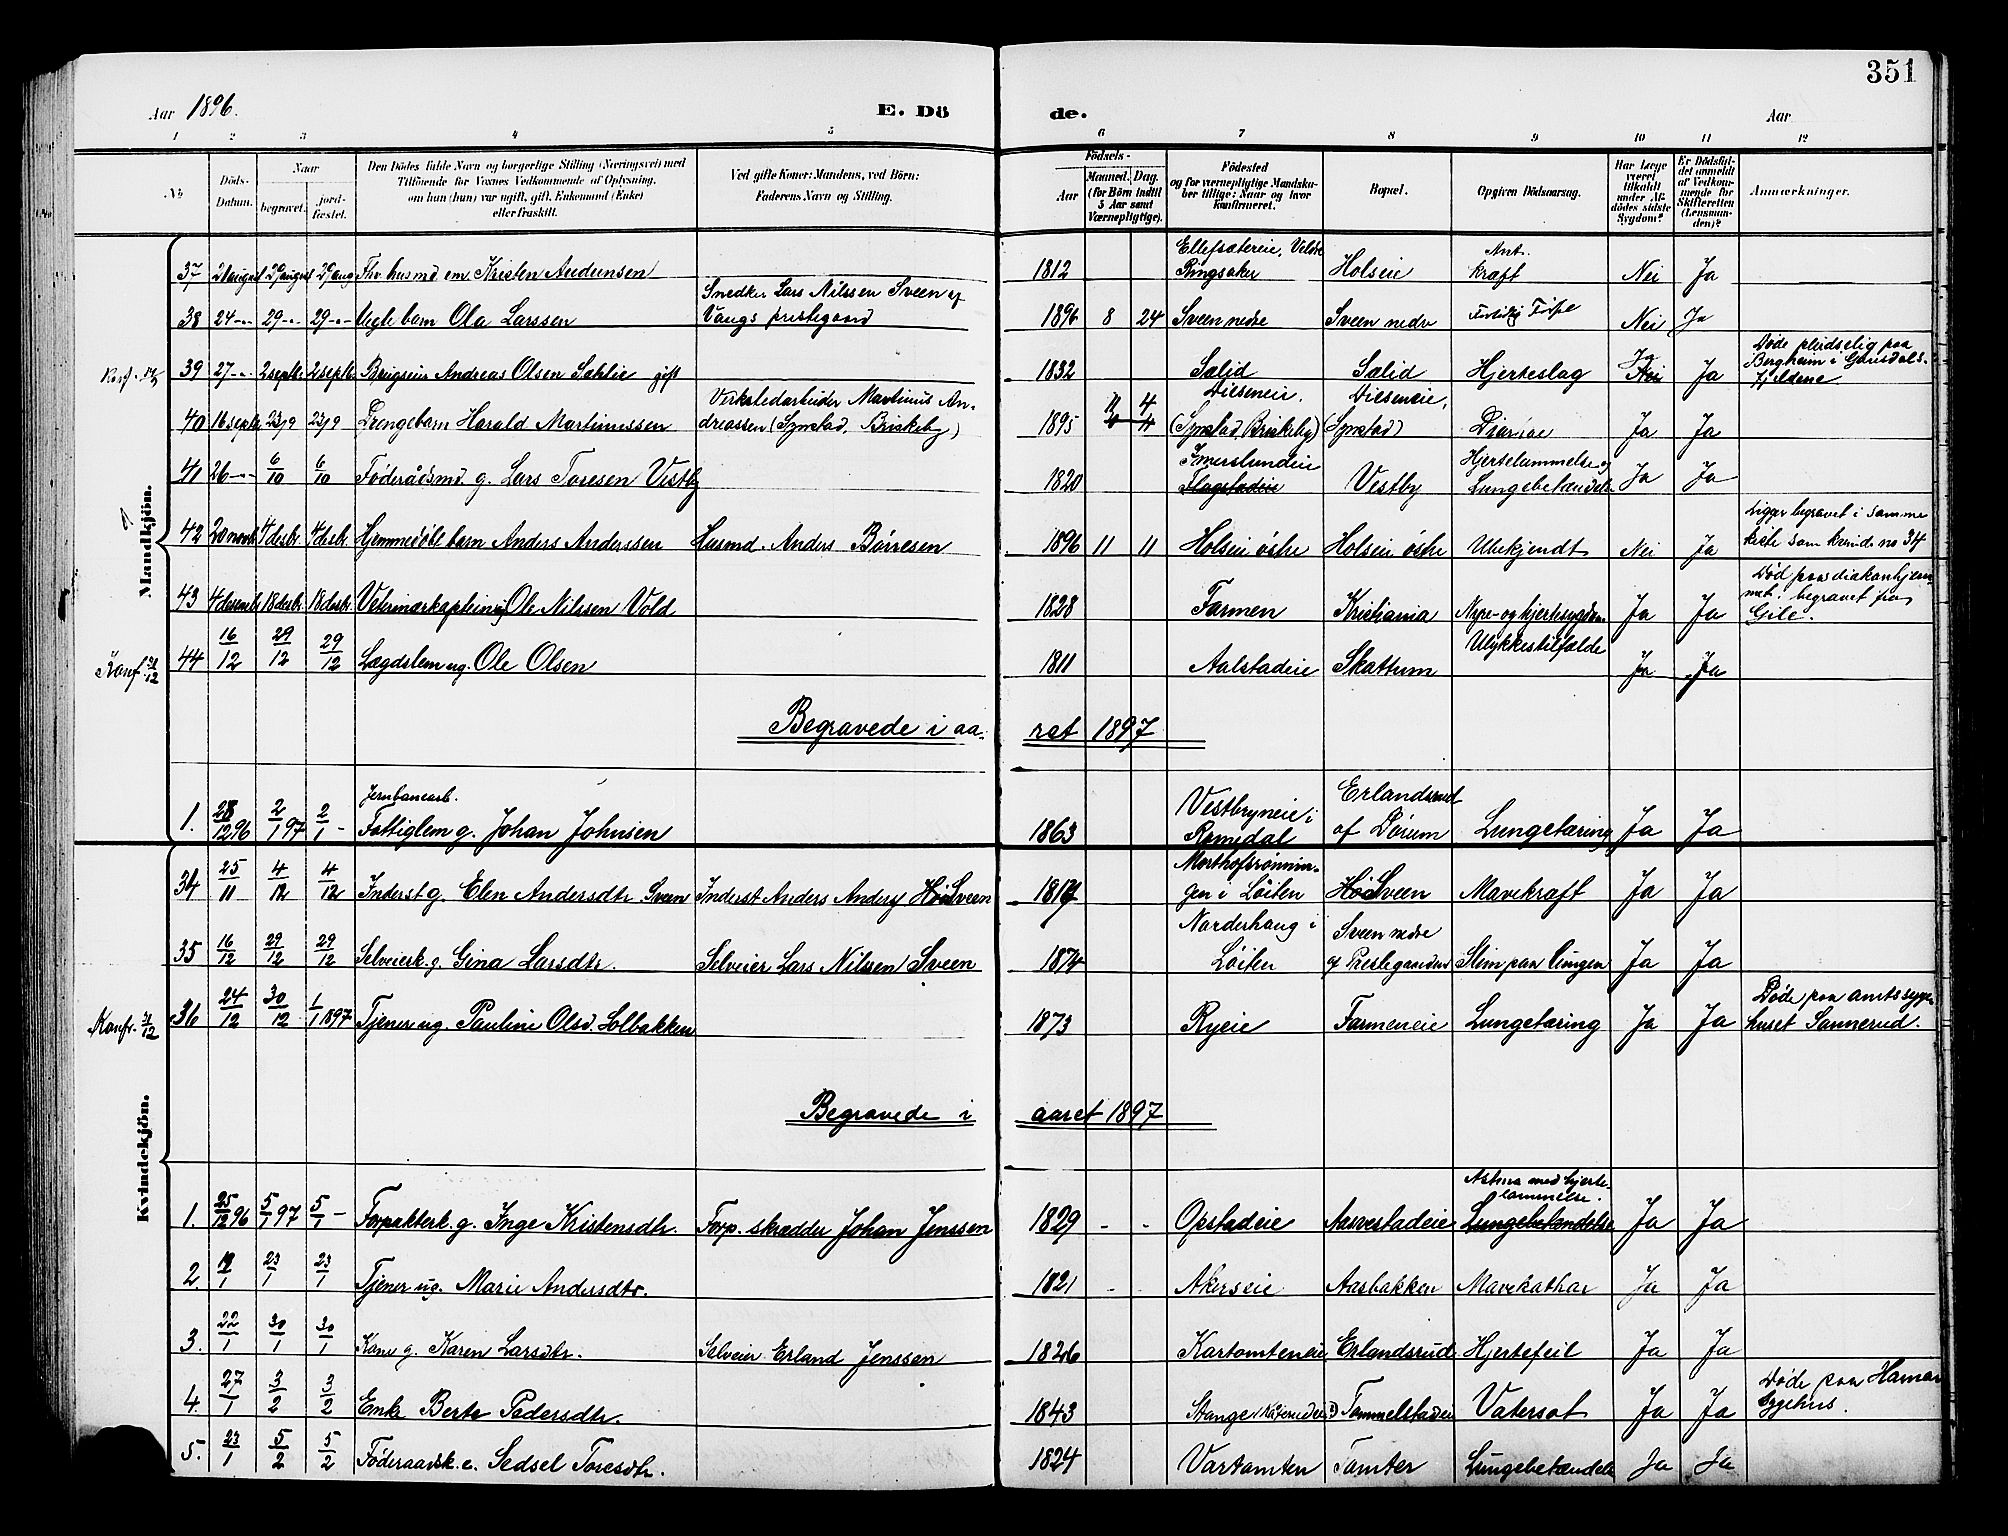 351
Aar 1896. E. Dö de. Aar
1 2 3 4 5 6 7 8 9 10 11 12
No
Döds-Datum.
Naar begravet. jordfæstet.
Den Dödes fulde Navn og borgerlige Stilling (Næringsvei) med Tilföiende for Voxnes Vedkommende af Oplysning, om han (hun) var ugift, gift, Enkemand (Enke) eller fraskilt.
Ved gifte Koner: Mandens, ved Börn: Faderens Navn og Stilling.
Födsels- Aar Maaned. Dag. (for Börn indtil 5 Aar samt Værnepligtige).
Födested og for værnepligtige Mandskaber tillige: Naar og hvor konfirmeret.
Bopæl.
Opgiven Dödsaarsag.
Har Læge været tilkaldt under Afdödes sidste Sygdom?
Er Dödsfaldet anmeldt af Vedkommende for Skifteretten (Lensmanden)?
Anmærkninger.
Mandkjön.
37 21 august 29 august 29 aug Fhv. husmd em. Kristen Andersen 1812 Ellefsætereie, Veldre Ringsaker Holseie kræft Nei Ja
38 24 -"- 29 -"- 29 -"- Uegte barn Ola Larssen Snedker Lars Nilssen Sveen af Vangs prestegaard 1896 8 24 Sveen nedre Sveen nedre Nei Ja
39 27 -"- 2 septr. 2 septr. Andreas Olsen Sælid gift 1832 Sælid Sælid Hjerteslag Ja Nei Ja Døde pludselig paa Bergheim i Gausdals-fjeldene
40 16 septr 23/9 23/9 Drengebarn Harald Martinussen Verkstedarbeider Martinus Andreassen (Synstad, Briskeby) 1895 4 Diseneie, (Synstad, Briskeby) Diseneie, (Synstad) Diarrae Ja Ja
41 26 -"- 6/10 6/10 Føderådsmd. g. Lars Toresen Vestby 1820 Imerslundeie Flagstadeie Vestby Hjertelammelse og Lungebetændelse Ja Ja
42 20 novbr 4 desbr. 4 desbr. Hjemmedøbt barn Anders Anderssen Husmd. Anders Børresen 1896 11 11 Holseie østre Holseie østre Ubekjendt Nei Ja Ligger begravet i samme kiste som kvinde no 34
43 4 desembr 18 desbr. 18 desbr. Veterinærkaptein Ole Nilssen Vold 1828 Farmen Kristiania Nyre- og hjertesygdom Ja Ja Død paa diakonhjemmet. begravet fra Gile.
Konf. 31/12
44 16/12 29/12 29/12 Lægdslem ug. Ole Olsen 1811 Aalstadeie Skattum Ulykkestilfælde Ja Ja
Begravede i aaret 1897
1. 28/12 96 2/1 97 2/1 - Jernbanearb. Fattiglem g. Johan Johnsen 1863 Vestbryneie i Romedal Erlandsrud af Dørum Lungetæring Ja Ja
Kvindekjön.
34 25/11 4/12 4/12 Inderst g. Elen Andersdtr. Sveen Inderst Anders Anders. Høisveen Løiten Høisveen Mavekræft Ja Ja
35 16/12 29/12 29/12 Selveierk. g. Gina Larsdtr. Selveier Lars Nilssen Sveen 1874 Norderhaug i Løiten Sveen nedre af Prestegaarden Slim paa lungen Ja Ja
Konfr. 31/12
36 24/12 30/12 1/1 1897 Tjener ug. Pauline Olsd. Solbakken 1873 Ryeie Farmeneie Lungetæring Ja Ja Døde paa amtssygehuset Sannerud.
Begravede i aaret 1897
1. 25/12 96 5/1 97 5/1 - Forpakterk. g. Inge Kristensdtr. Forp. skrædder Johan Jenssen 1829 - - Opstadeie Aasvestadeie Astma med hjertelammelse. Lungebetændelse Ja Ja
2. 23/1 23/1 Tjener ug. Marie Andersdtr. 1821 - - Akerseie Aasbakken Mavekathar Ja Ja
3. 22/1 30/1 30/1 Kone g. Karen Larsdtr. Selveier Erland Jenssen 1826 Kartomteneie Erlandsrud Hjertefeil Ja Ja
4. 27/1 3/2 3/2 Enke Berte Pedersdtr. 1843 Stange Tommelstadeie Vatersot Ja Ja Døde paa Hamar Sygehus.
5. 23/1 5/2 5/2 Føderaadsk. e. Sedsel Toresdtr. 1824 Vartomten Tomter Lungebetændelse Ja Ja